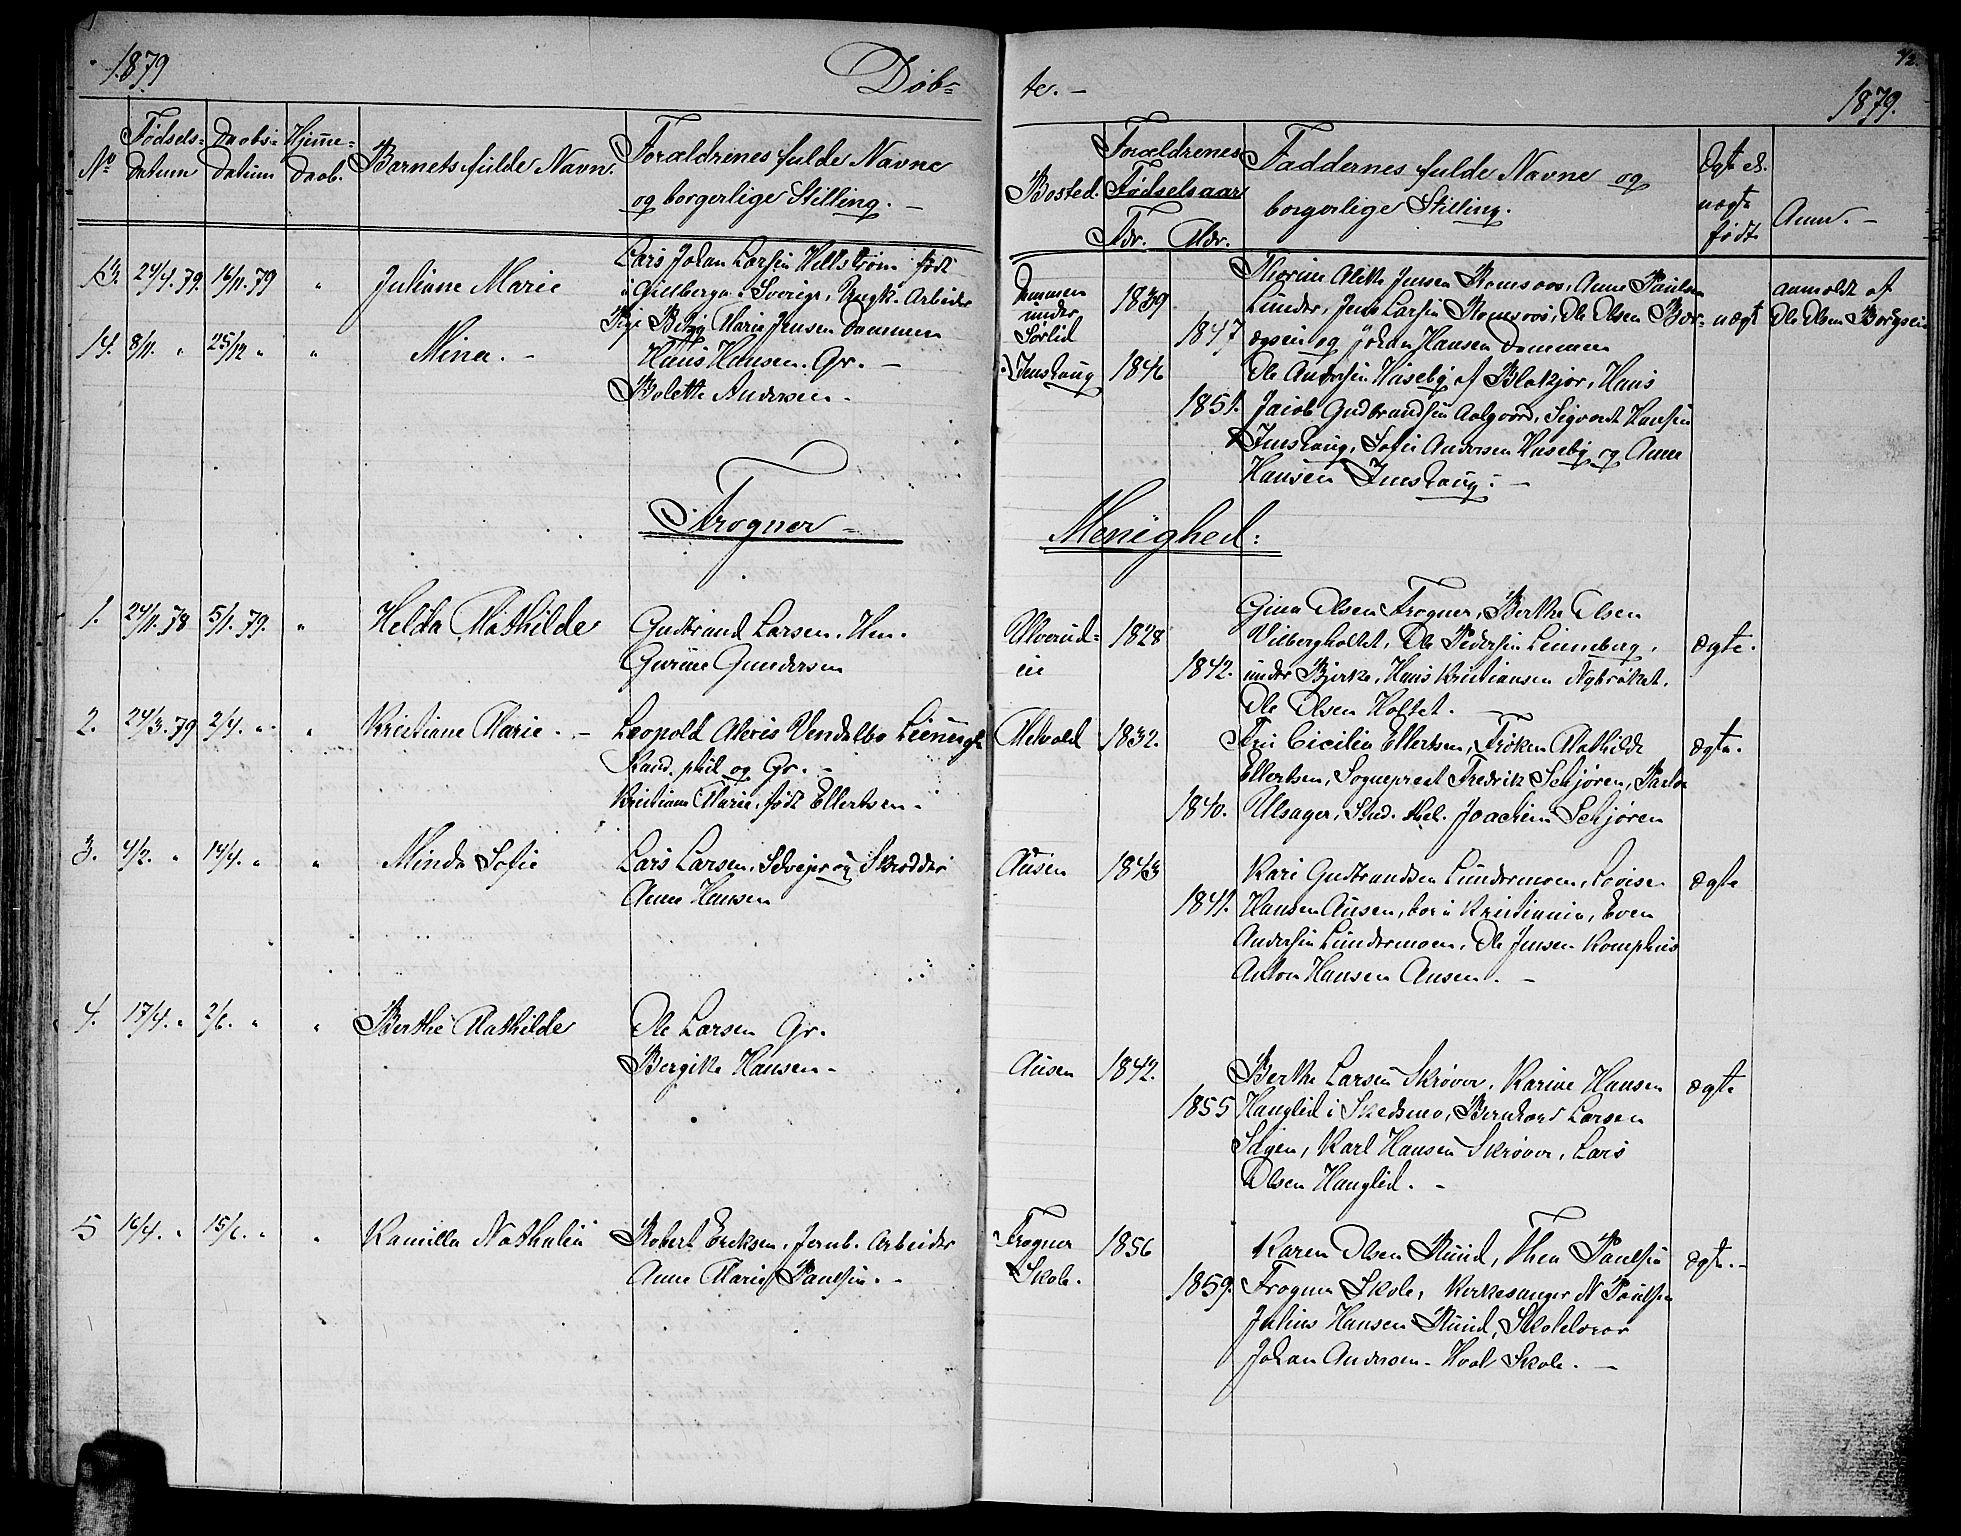 1879
Døb=
te. -
42.
1879.
No
Fødsels-
Datum
Daabs-
Datum
Hjemme-
Daab.
Barnets fulde Navn.
Forældrenes fulde Navne
og borgerlige Stilling. -
Bosted.
Forældrenes
Fødselsaar
Fdr. Mdr.
Faddernes fulde Navne og
borgerlige Stilling.
Ægte el.
uægte
født
Anm. -
13. 24/4. 79. 16/11. 79 " Juliane Marie
Lars Johan Larsen Hellstrøm født
i Gillberga i Sverige, Arbeider
Pige Marie Jensen Dammen
Dammen
under
Sørlid
1839
1847
Jensen Romsaas, Anne Paulsen
Lunder, Jens Larsen Romsaas, Ole Olsen Bør-
gesen og Johan Hansen Dammen
uægt
anmeldt af
Ole Olsen Børgesen
14. 8/11. " 25/12 " " Mina. -
Hans Hansen. Gr. -
Bolette Andersen -
Imshaug
1846
1851.
Ole Andersen Haseby af Blakjer, Hans
Jacob Gudbrandsen Aalgaard, Sigvardt Hansen
Imshaug, Sofie Andersen Haseby og Anne
Hansen Imshaug. -
Frogner =
Menighed:
1. 24/11. 78 5/1. 79. " Helda Mathilde
Gudbrand Larsen. Hm.
Gurine Gundersen
Ulverud-
eie
1828
1842.
Gina Olsen Frogner, Berthe Olsen
Vilbergholtet, Ole Pedersen Linneberg,
under Bjerke, Hans Kristiansen Nybråtet.
Ole Olsen Holtet. -
Ægte.
2. 24/3. 79 2/4. " " Kristiane Marie. -
Leopold Alexis Vendelbo
Kand. phil og Gr. -
Kristiane Marie, født Ellertsen -
Melvold
1832.
1840.
Fru Cicilia Ellertsen, Frøken Mathilde
Ellertsen, Sogneprest Fredrik Schjøren,
Ulsager, Stud. Joachim Schjøren
ægte.
3. 4/2. " 14/4. " " Minda Sofie
Lars Larsen, Selveier og Skrædder
Anne Hansen
Ausen
1843
1841.
Kari Gudbrandsen Lundermoen, Lovise
Hansen Ausen, bor i Kristiania, Even
Andersen Lundermoen, Ole Jensen Komphus
Anton Hansen Ausen. -
ægte
4. 17/4. " 2/6. " " Berthe Mathilde
Ole Larsen Gr.
Bergitte Hansen -
Ausen
1842.
1855
Berthe Larsen Skrøver, Karine Hansen
Hauglid i Skedsmo, Bernhard Larsen
Sagen, Karl Hansen Skrøver, Lars
Olsen Hauglid. -
ægte
5 16/4. " 15/6. " " Kamilla Nathalie
Robert Eriksen. Jernb. Arbeider
Anne Marie Paulsen. -
Frogner
Skole.
1856
1859.
Karen Olsen Ruud, Thea Paulsen
Frogner Skole, Kirkesanger N Paulsen
Julius Hansen Ruud, Skolelærer
Johan Andersen - Hval Skole. -
ægte. -